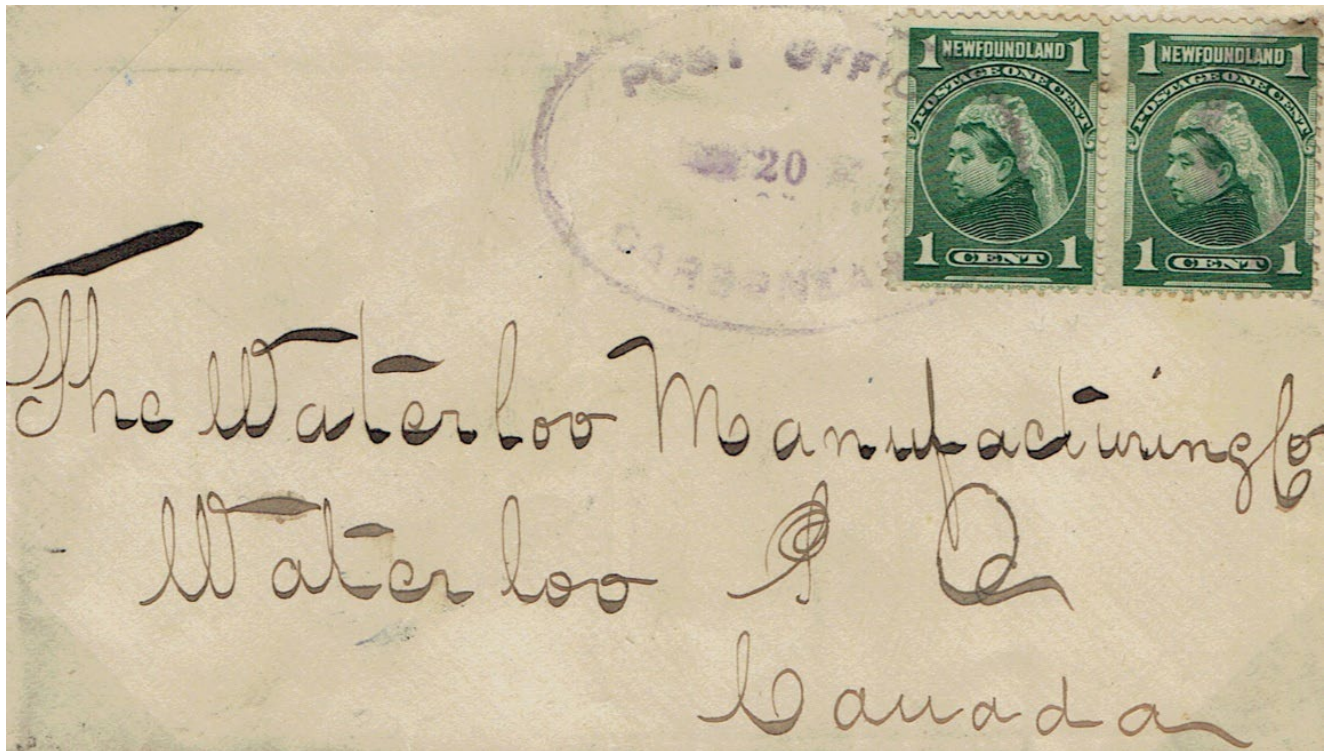 POST OFFIC
20
CARBONEAR
1 NEWFOUNDLAND 1
POSTAGE ONE CENT
1 CENT 1
1 NEWFOUNDLAND 1
POSTAGE ONE CENT
1 CENT 1
The Waterloo Manufacturing Co
Waterloo P Q
Canada